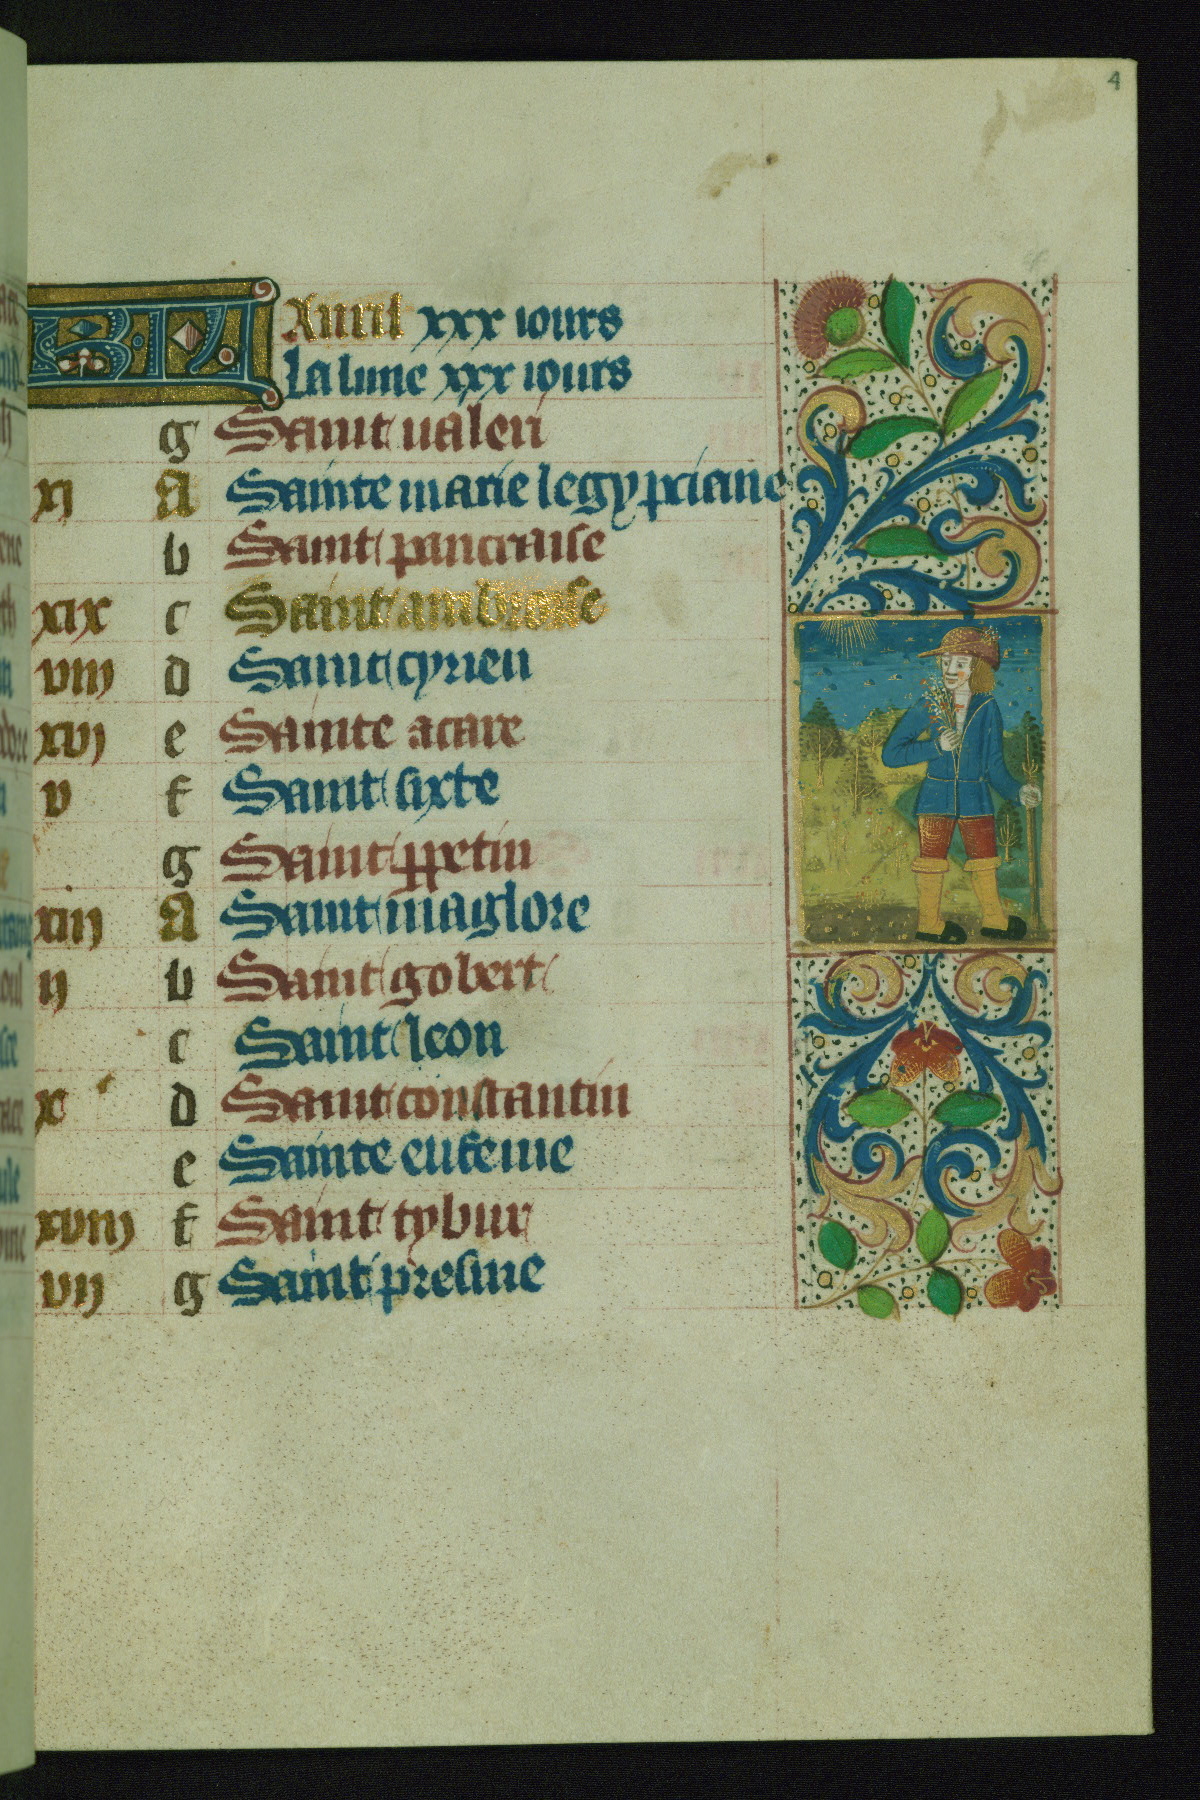 4
KL Auril xxx iours
La lune xxx iours
g Saint ualeri
xj A Sainte marie legypciane
b Saint pancraise
xix c Saint ambroise
viij d Saint cyrien
xvj e Sainte acare
v f Saint sixte
g Saint ppetin
xiij A Saint maglore
ij b Saint gobert
c Saint leon
x d Saint constantin
e Sainte eufemie
xviij f Saint tybur
vij g Saint presme